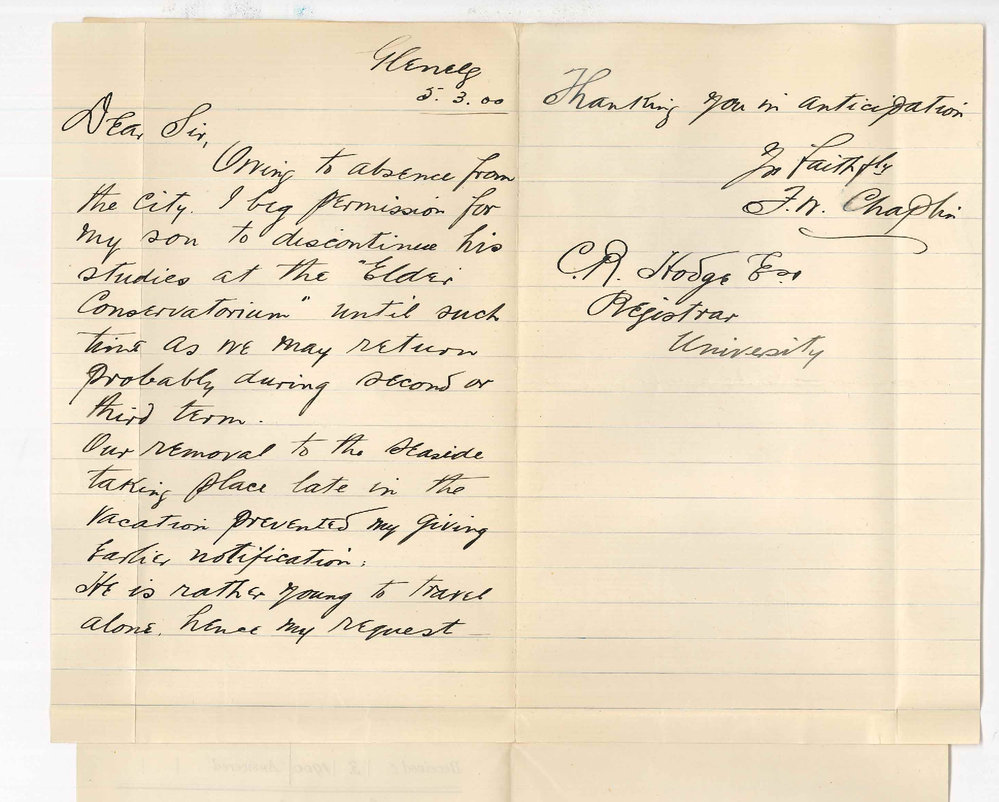 Glenelg
5.3.00
Dear Sir,
Owing to absence from
the city. I beg permission for
my son to discontinue his
studies at the "Elder
Conservatorium" until such
time as we may return
probably during second or
third term.
Our removal to the seaside
taking place late in the
vacation prevented my giving
Earlier notification.
He is rather young to travel
alone. hence my request
Thanking you in anticipation
Yrs faithfly
F.W. Chaplin
C.R. Hodge Esq
Registrar
University